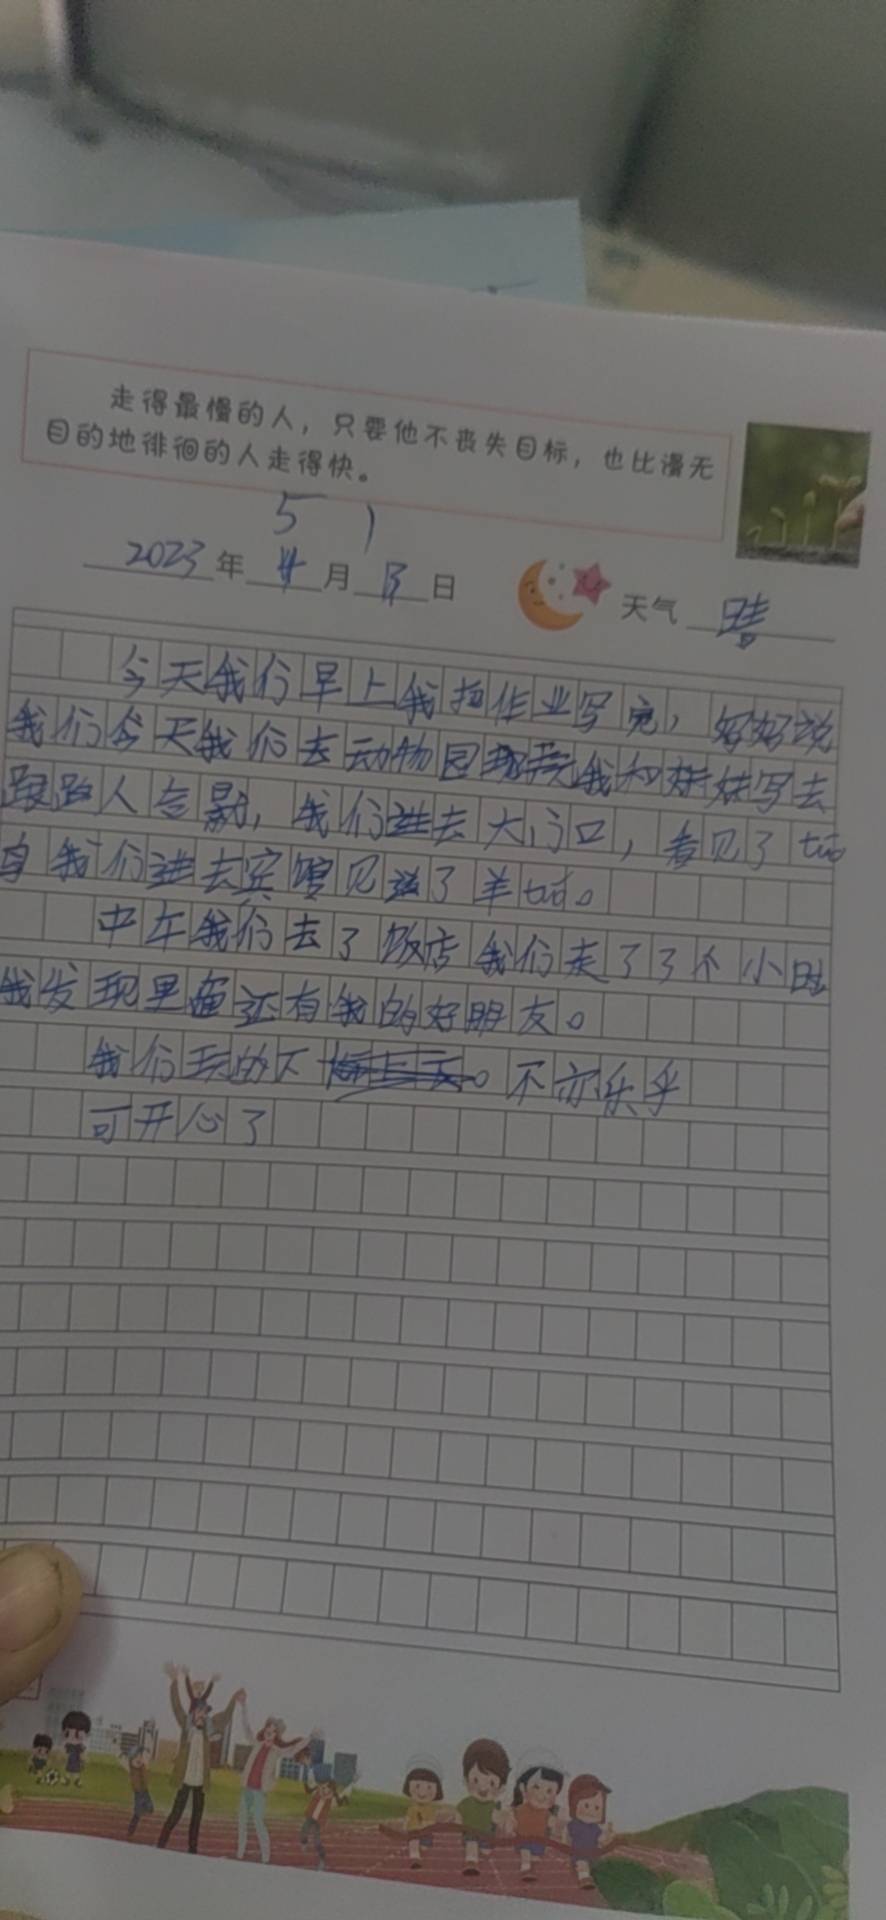 走得最慢的人，只要他不丧失目标，也比漫无
目的地徘徊的人走得快。
5 1
2023年4月 日 天气 晴
今天我们早上我把作业写完，妈妈说
我们今天我们去动物园 我和妹妹写去
跟路人合影，我们进去大门口，看见了tuó
鸟我们进去宾馆见 了羊tuó。
中午我们去了饭店我们走了了个小时
我发现里面还有我的好朋友。
我们玩的不 。不亦乐乎
可开心了